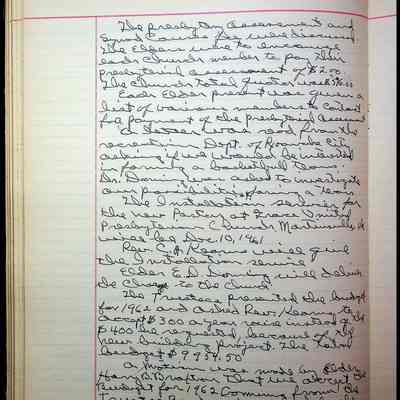 The presbytery assessment and
Synod Causes for was discussed.
The Elders were to encourage
each church member to pay their
presbyterial assessment of $2.00
The Church's total quota was
Each Elder present was given a
list of various members to contact
for payment of the presbyterial
a letter was read from the
recreation Dept. of Roanoke City
asking if we would be interested
in forming a basketball team.
was asked to investigate
our possibilities for a team.
The Installation services for
the new Pastor at Grace United
Presbyterian Church Martinsville, Va
will be Dec. 10, 1961
Rev. Kearns will give
the Installation service
Elder E. D. will deliver
the Charge to the church
The Trustees presented the budget
for 1962 and asked Rev. Kearns to
accept $300 a year raise instead of the
$400 he requested, because of the
new building project. The total
budget $9959.50
a motion was made by Elder
Harry B. that we accept
Budget for 1962 coming from the